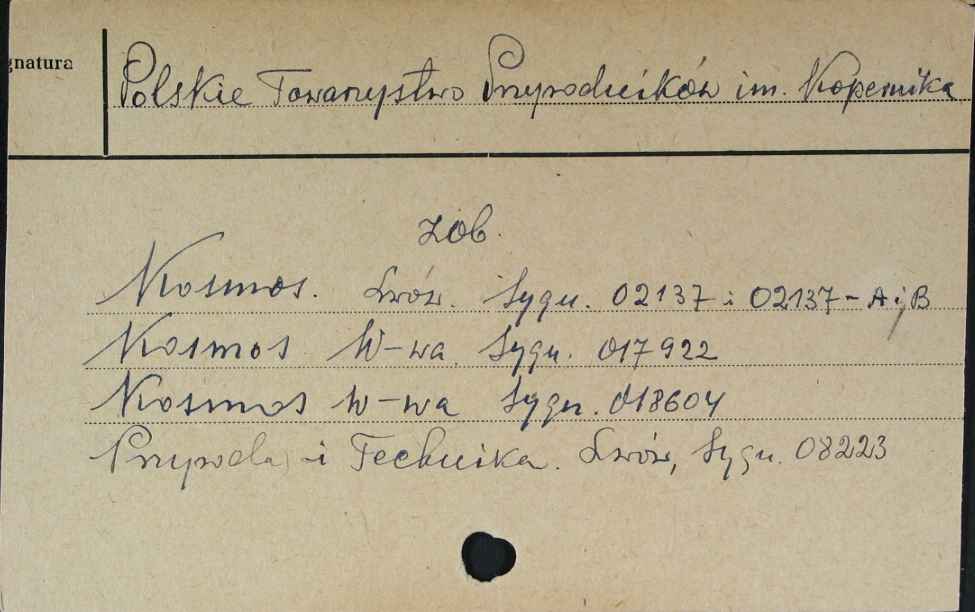 gnatura
Polskie Towarzystwo Przyrodników im. Kopernika
zob.
Kosmos. Lwów. Sygn. 02137 i 02137-A i B
Kosmos W-wa Sygn. 017922
Kosmos W-wa Sygn. 018604
Przyroda i Technika. Lwów, Sygn. 08223